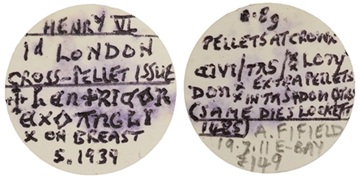 HENRY VI
1d LONDON
CROSS-PELLET ISSUE
ANGLI
X ON BREAST
S. 1939
0.8g
PELLETS AT CROWN
CIVI/TAS/
EXTRA PELLETS
DON X IN TAS
(SAME DIES LOCKETT
A. FIFIELD
19.3.11 E-BAY
£149